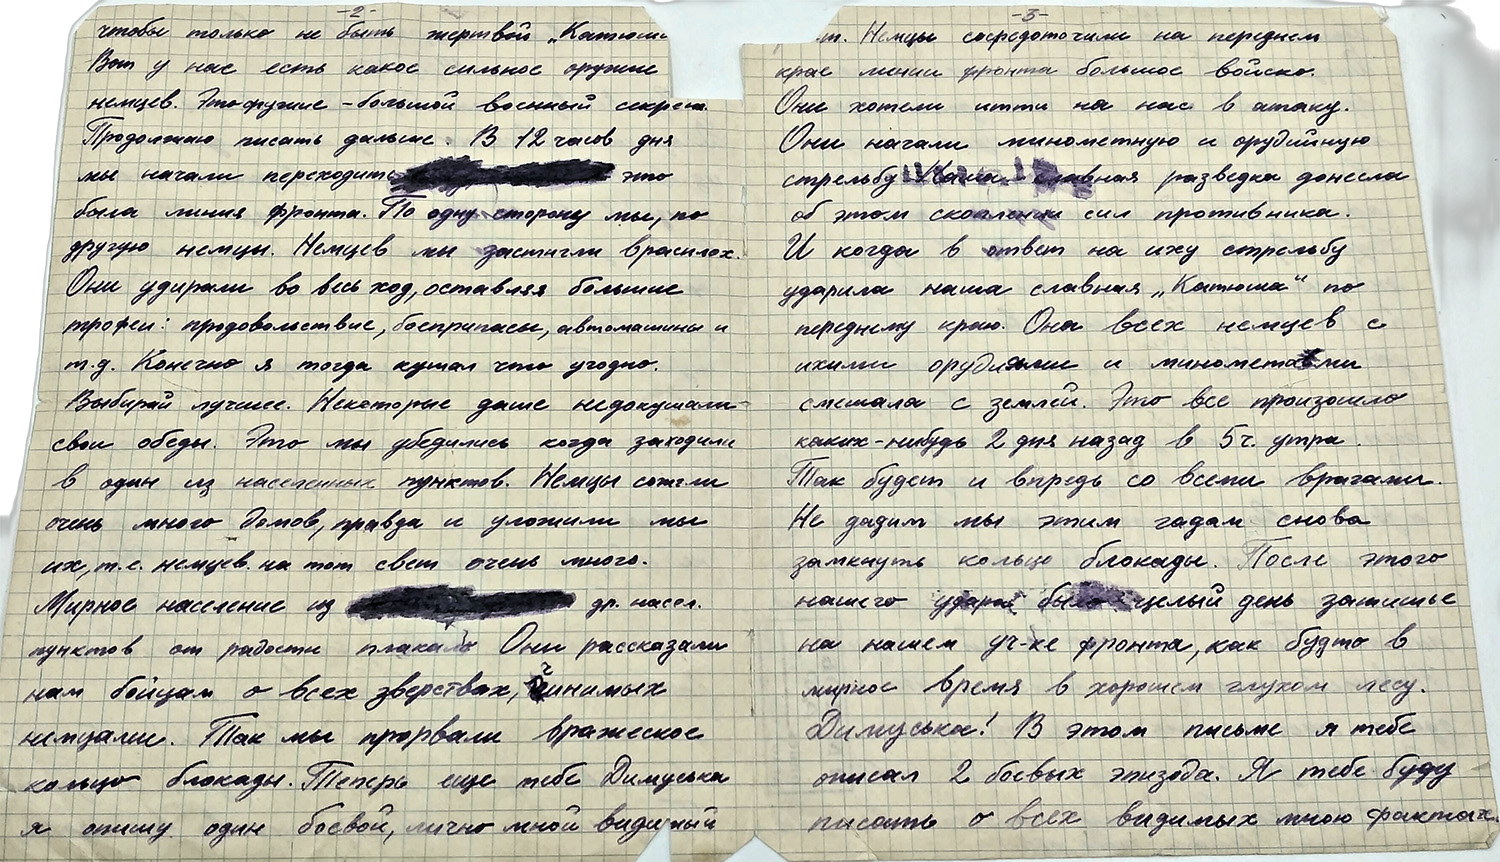 -2-
чтобы только не быть жертвой „Катюши
Вот у нас есть какое сильное оружие
немцев. Это оружие - большой военный секрет.
Продолжаю писать дальше. В 12 часов дня
мы начали переходить это
была линия фронта. По одну сторону мы, по
другую немцы. Немцев мы застигли врасплох.
Они удирали во весь ход, оставляя большие
трофеи: продовольствие, боеприпасы, автомашины и
т.д. Конечно я тогда кушал что угодно.
Выбирай лучшее. Некоторые даже недокушали
свои обеды. Это мы убедились когда заходили
в один из населенных пунктов. Немцы сожгли
очень много домов, правда и уложили мы
их, т.е. немцев на тот свет очень много.
Мирное население из др. насел.
пунктов от радости плакало Они рассказали
нам бойцам о всех зверствах, чинимых
немцами. Так мы прорвали вражеское
кольцо блокады. Теперь еще тебе Димуська
я опишу один боевой, лично мной видимый
-3-
т. Немцы сосредоточили на переднем
крае линии фронта большое войско.
Они хотели итти на нас в атаку.
Они начали минометную и орудийную
стрельбу. Наша славная разведка донесла
об этом скоплении сил противника.
И когда в ответ на иху стрельбу
ударила наша славная „Катюша" по
переднему краю. Она всех немцев с
ихими орудиями и минометами
смешала с землей. Это все произошло
каких-нибудь 2 дня назад в 5 ч. утра.
Так будет и впредь со всеми врагами.
Не дадим мы этим гадам снова
замкнуть кольцо блокады. После этого
нашего удара было целый день затишье
на нашем уч-ке фронта, как будто в
мирное время в хорошем глухом лесу.
Димуська! В этом письме я тебе
описал 2 боевых эпизода. Я тебе буду
писать о всех видимых мною фактах.